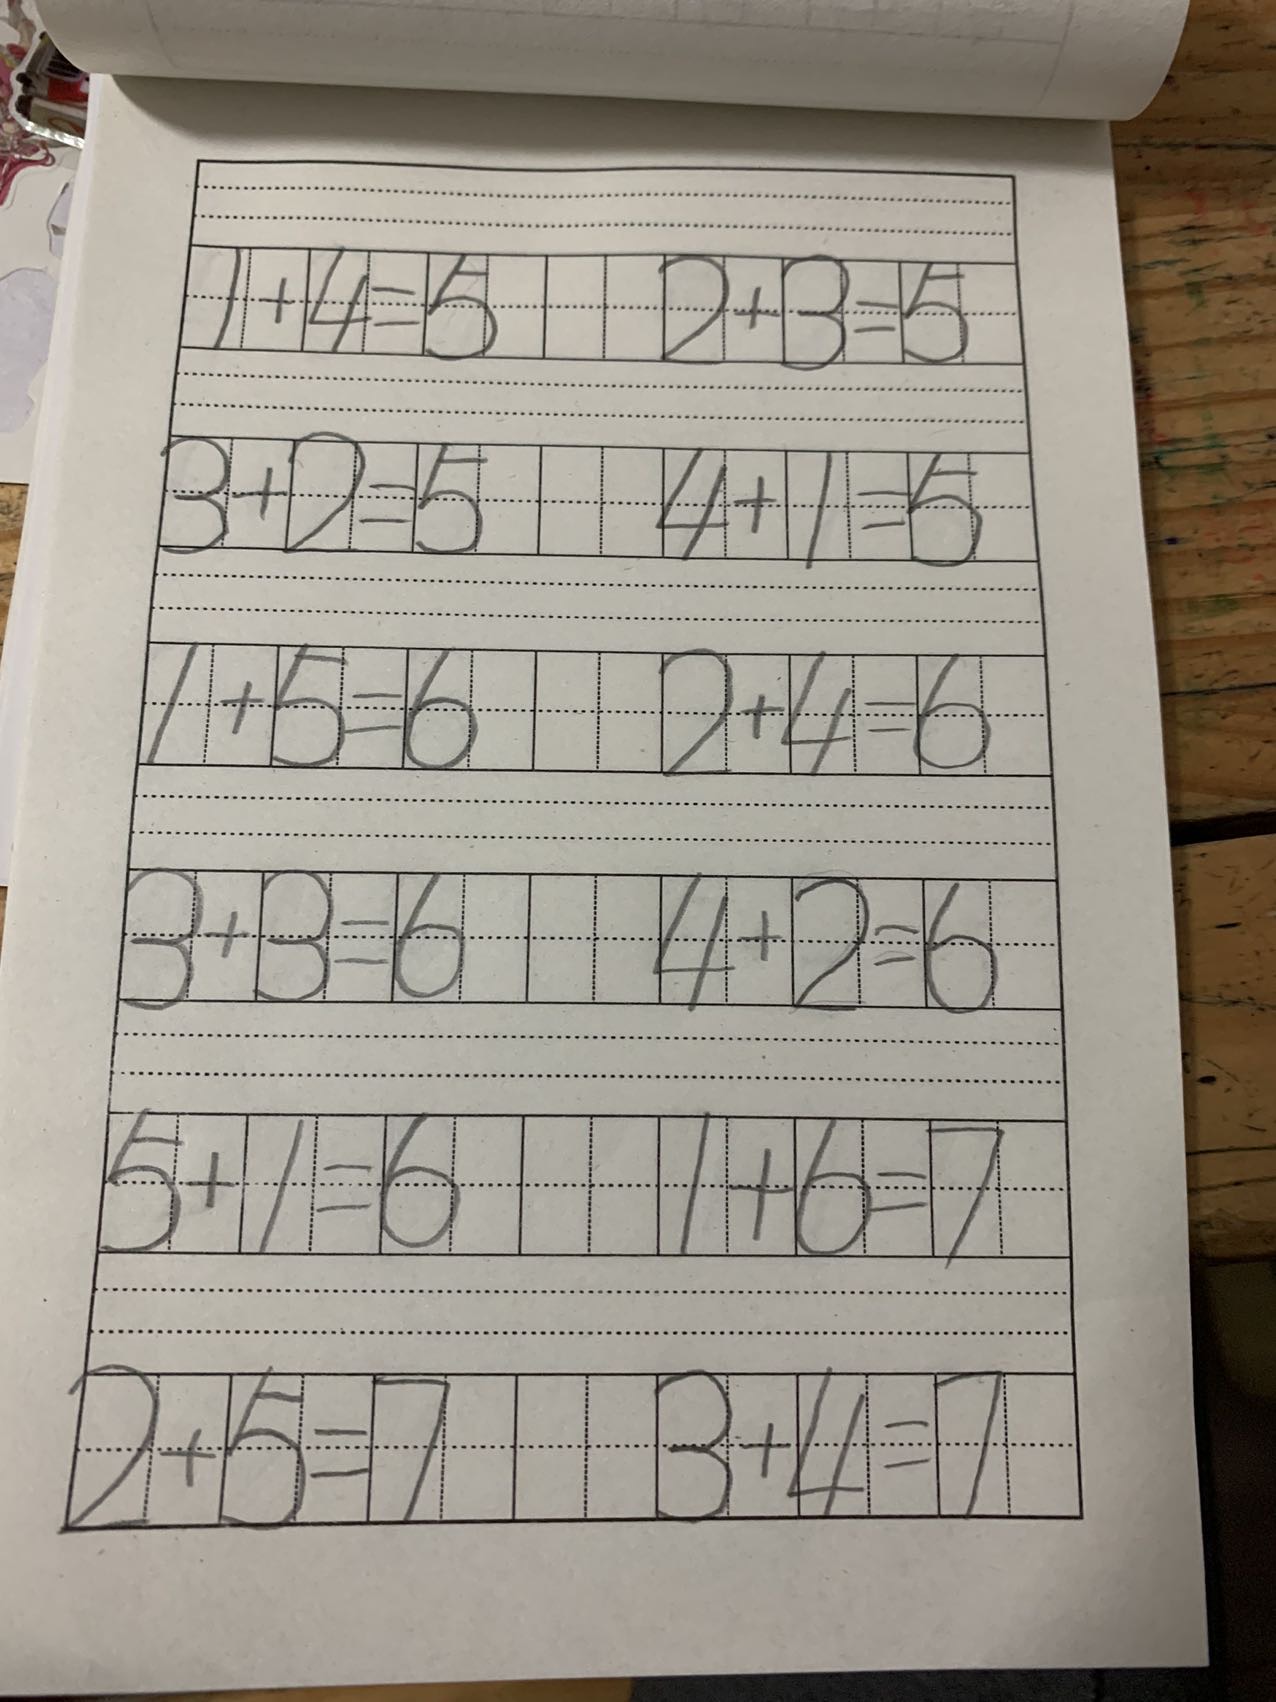 1+4=5 2+3=5
3+2=5 4+1=5
1+5=6 2+4=6
3+3=6 4+2=6
5+1=6 1+6=7
2+5=7 3+4=7